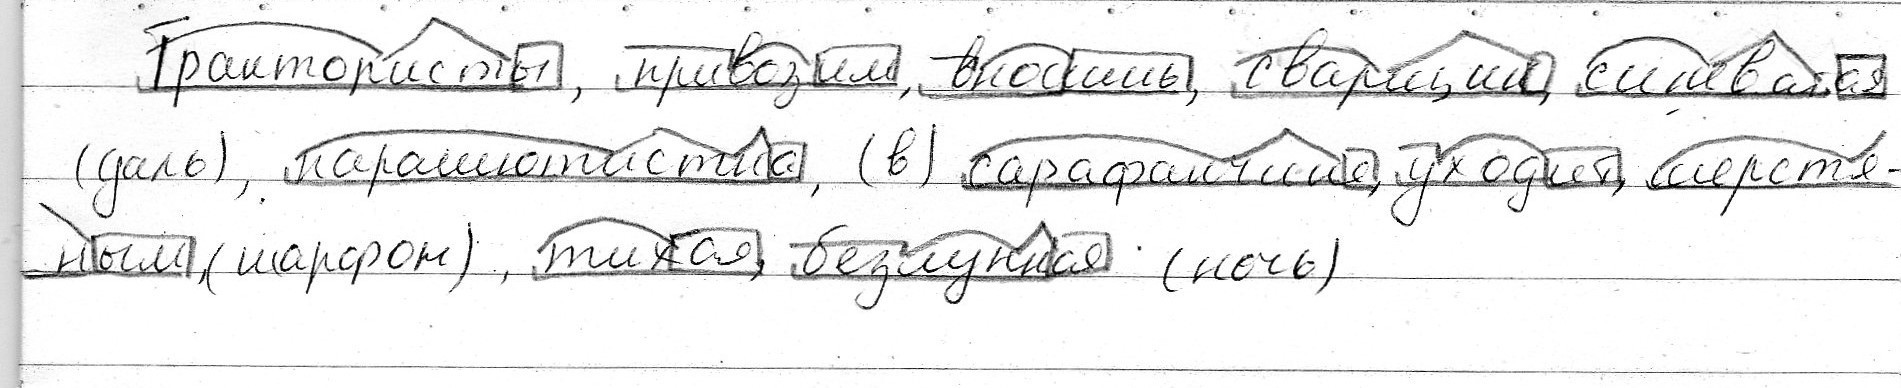 Трактористы, привозим, вносишь, сварщик, синеватая
(даль), парашютистка, (в) сарафанчике, уходит, шерстя-
ным, (шарфом), тихая, безлунная (ночь)